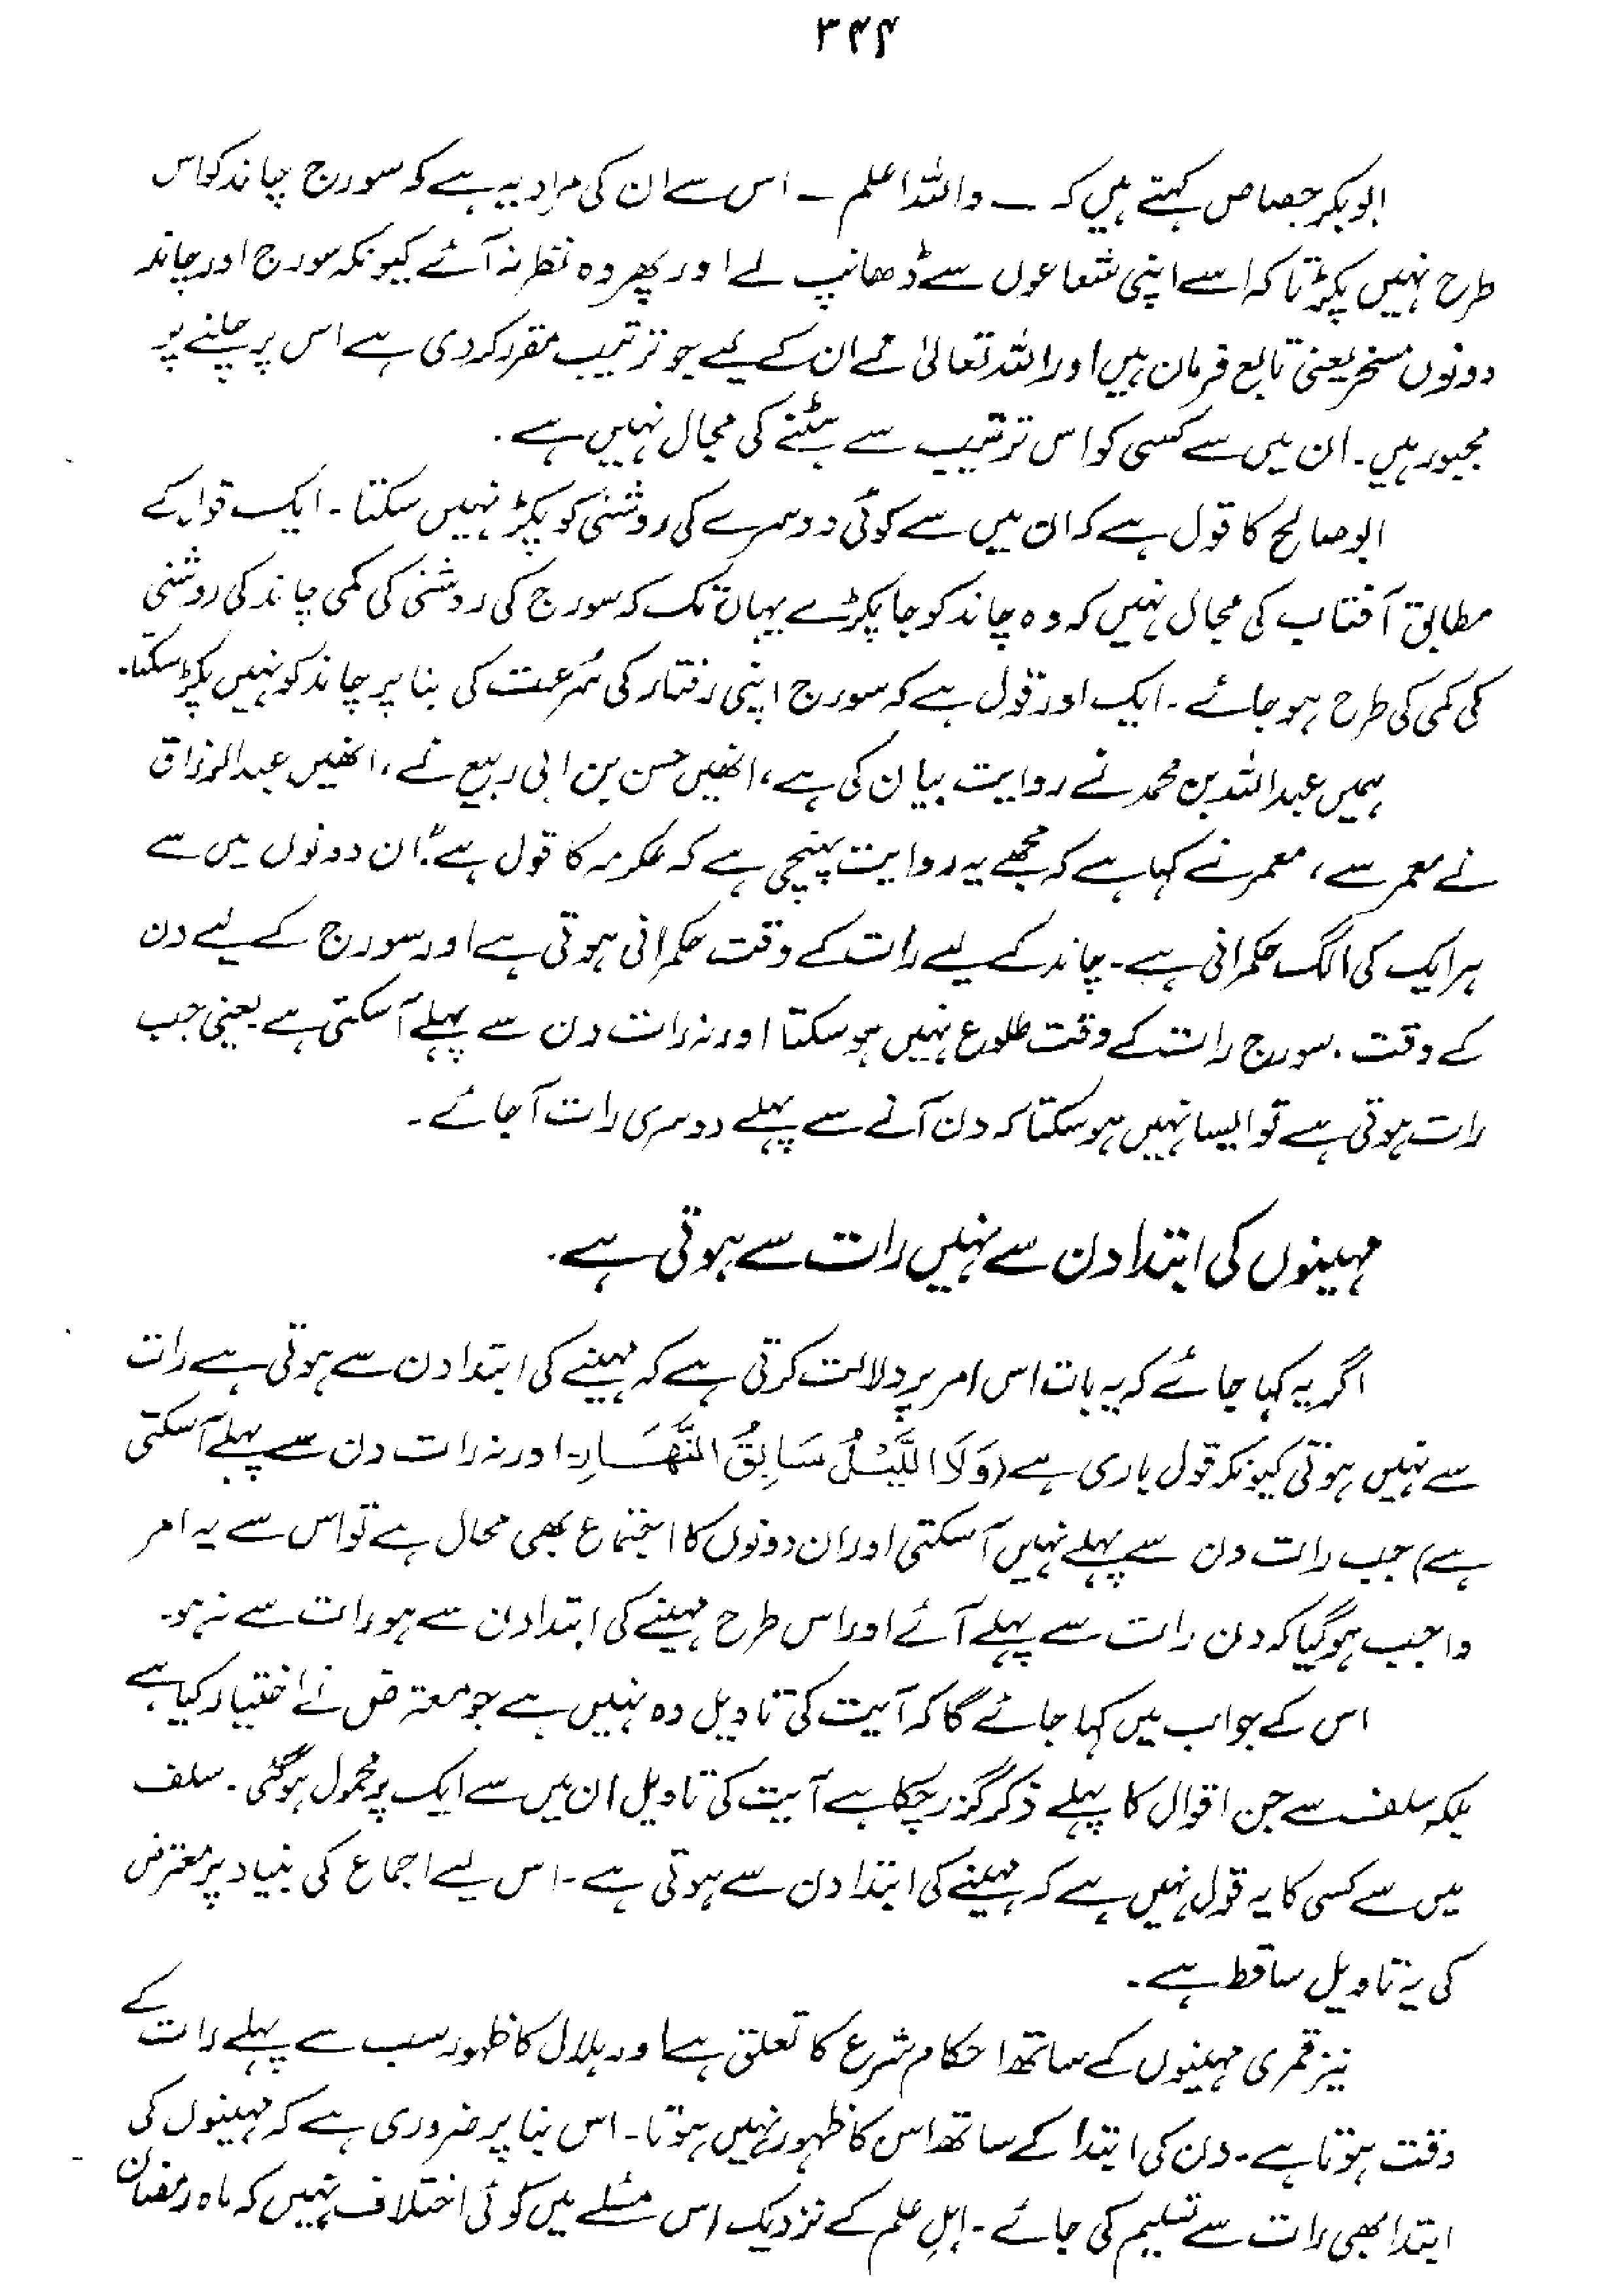 ۳۴۴
ابوبکر جصاص کہتے ہیں کہ ــ واللہ اعلم ــ اس سے ان کی مراد یہ ہے کہ سورج چاند کو اس
طرح نہیں پکڑتا کہ اسے اپنی شعاعوں سے ڈھانپ لے اور پھر وہ نظر نہ آئے کیونکہ سورج اور چاند
دونوں مسخر یعنی تابع فرمان ہیں اور اللہ تعالیٰ نے ان کے لیے جو ترتیب مقرر کر دی ہے اس پر چلنے پر
مجبور ہیں۔ ان میں سے کسی کو اس ترتیب سے ہٹنے کی مجال نہیں ہے۔
ابو صالح کا قول ہے کہ ان میں سے کوئی دوسرے کی روشنی کو پکڑ نہیں سکتا۔ ایک قول کے
مطابق آفتاب کی مجال نہیں کہ وہ چاند کو جا پکڑے یہاں تک کہ سورج کی روشنی کی کمی چاند کی روشنی
کی کمی کی طرح ہو جائے۔ ایک اور قول ہے کہ سورج اپنی رفتار کی سُرعت کی بنا پر چاند کو نہیں پکڑ سکتا۔
ہمیں عبداللہ بن محمد نے روایت بیان کی ہے، انھیں حسن بن ابی ربیع نے، انھیں عبدالرزاق
نے معمر سے، معمر نے کہا ہے کہ مجھے یہ روایت پہنچی ہے کہ عکرمہ کا قول ہے: "ان دونوں میں سے
ہر ایک کی الگ حکمرانی ہے۔ چاند کے لیے رات کے وقت حکمرانی ہوتی ہے اور سورج کے لیے دن
کے وقت۔ سورج رات کے وقت طلوع نہیں ہو سکتا اور نہ رات دن سے پہلے آ سکتی ہے یعنی جب
رات ہوتی ہے تو ایسا نہیں ہو سکتا کہ دن آنے سے پہلے دوسری رات آ جائے۔
مہینوں کی ابتدا دن سے نہیں رات سے ہوتی ہے۔
اگر یہ کہا جائے کہ یہ بات اس امر پر دلالت کرتی ہے کہ مہینے کی ابتدا دن سے ہوتی ہے رات
سے نہیں ہوتی کیونکہ قول باری ہے (وَلَا اللَّيْلُ سَابِقُ النَّهَارِ۔ اور نہ رات دن سے پہلے آ سکتی
ہے) جب رات دن سے پہلے نہیں آ سکتی اور ان دونوں کا اجتماع بھی محال ہے تو اس سے یہ امر
واجب ہو گیا کہ دن رات سے پہلے آئے اور اس طرح مہینے کی ابتدا دن سے ہو رات سے نہ ہو۔
اس کے جواب میں کہا جائے گا کہ آیت کی تاویل وہ نہیں ہے جو معترض نے اختیار کیا ہے
بلکہ سلف سے جن اقوال کا پہلے ذکر گزر چکا ہے آیت کی تاویل ان میں سے ایک پر محمول ہو گئی۔ سلف
میں سے کسی کا یہ قول نہیں ہے کہ مہینے کی ابتدا دن سے ہوتی ہے۔ اس لیے اجماع کی بنیاد پر معترض
کی یہ تاویل ساقط ہے۔
نیز قمری مہینوں کے ساتھ احکام شرع کا تعلق ہے اور ہلال کا ظہور سب سے پہلے رات کے
وقت ہوتا ہے۔ دن کی ابتدا کے ساتھ اس کا ظہور نہیں ہوتا۔ اس بنا پر ضروری ہے کہ مہینوں کی
ابتدا بھی رات سے تسلیم کی جائے۔ اہلِ علم کے نزدیک اس مسئلے میں کوئی اختلاف نہیں کہ ماہ رمضان